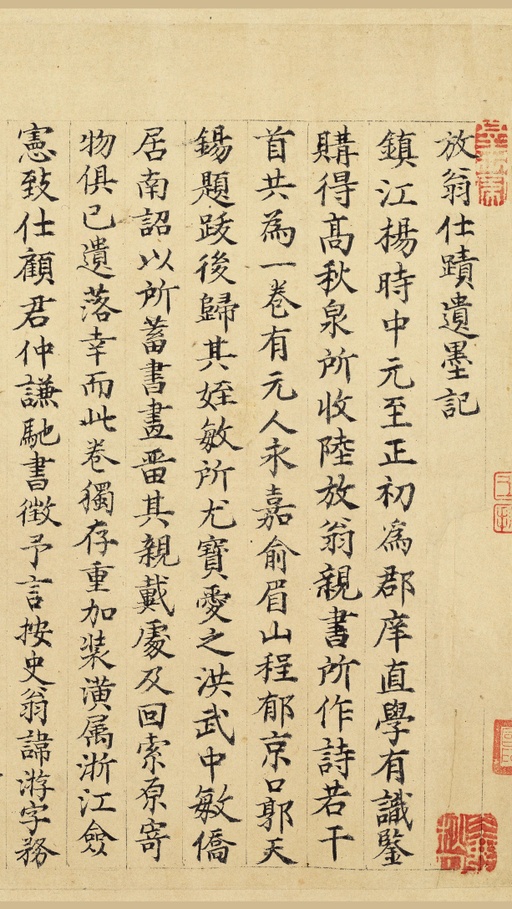 放翁仕蹟遺墨記
鎮江楊時中元至正初為郡庠直學有識鑒
購得髙秋泉所收陸放翁親書所作詩若干
首共為一卷有元人永嘉俞眉山程郁京口郭天
錫題跋後歸其姪敏所尤寶愛之洪武中敏僑
居南詔以所蓄書畫畱其親戴處及回索原寄
物俱已遺落幸而此卷獨存重加裝潢属浙江僉
憲致仕顧君仲謙馳書徵予言按史翁諱游字務